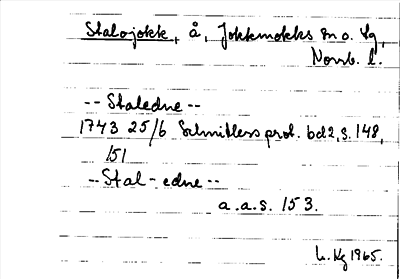 Stalojokk, å, Jokkmokks sn o. lg,
Norrb. l.
-- Staledne --
1743 25/6 Schnitlers prot. bd 2, s. 148,
151
-- Stal-edne --
a.a.s. 153.
1965.